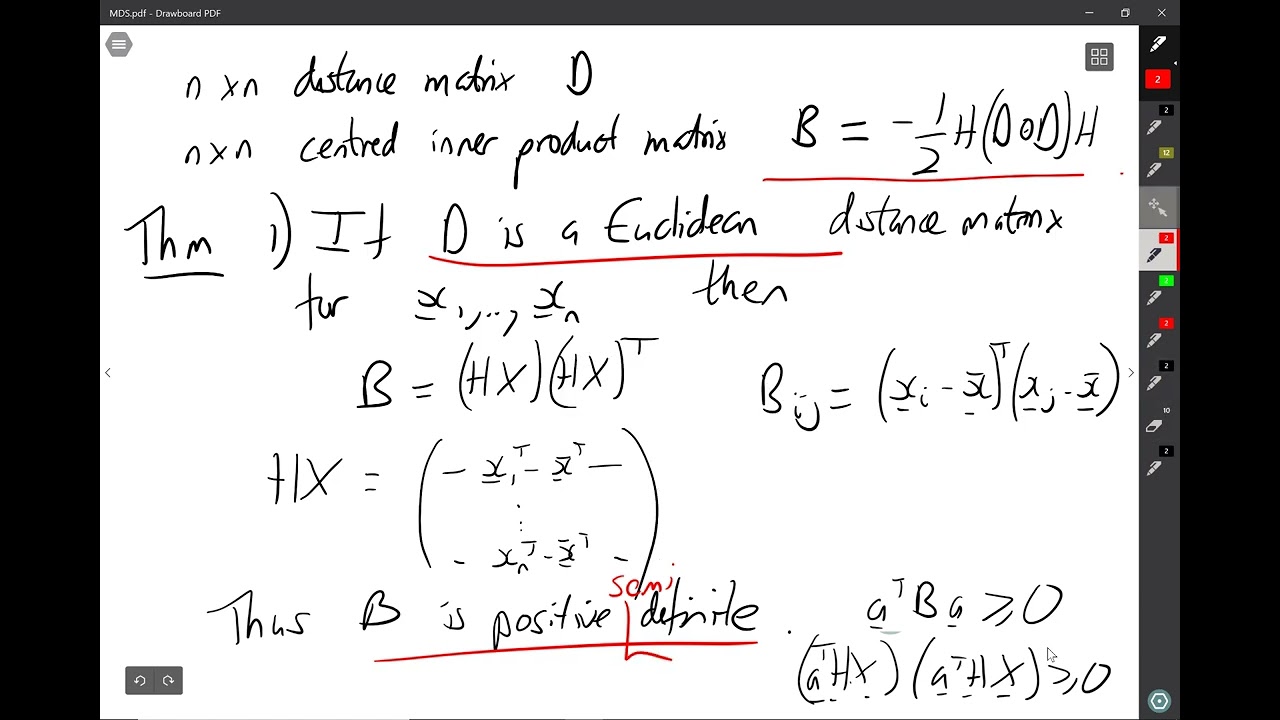 MDS.pdf - Drawboard PDF
n×n distance matrix D
n×n centred inner product matrix B = -1/2 H(D⊙D)H
Thm 1) If D is a Euclidean distance matrix
for x₁,..,xₙ then
B = (HX)(HX)ᵀ Bᵢⱼ = (xᵢ - x̄)ᵀ(xⱼ - x̄)
HX = ( - x₁ᵀ - x̄ᵀ -
⋮
- xₙᵀ - x̄ᵀ - )
semi
Thus B is positive definite. aᵀBa ≥ 0
(aᵀHX)(aᵀHX) ≥ 0
2
2
12
2
2
2
2
10
2